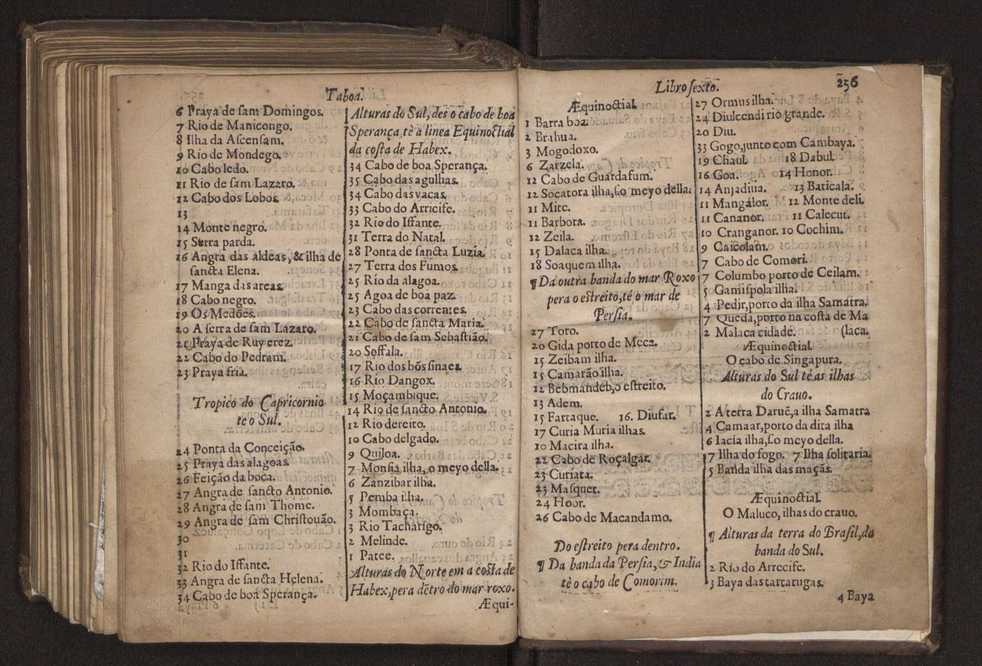 Taboa.
6 Praya de sam Domingos.
7 Rio de Manicongo.
8 Ilha da Ascensam.
9 Rio de Mondego.
10 Cabo ledo.
11 Rio de sam Lazaro.
12 Cabo dos Lobos.
13
14 Monte negro.
15 Serra parda.
16 Angra das aldeas, & ilha de
sancta Elena.
17 Manga das areas.
18 Cabo negro.
19 Os Medões.
20 A serra de sam Lazaro.
21 Praya de Ruy erez.
22 Cabo do Pedram.
23 Praya fria.
Tropico do Capricornio
te o Sul.
24 Ponta da Conceição.
25 Praya das alagoas.
26 Feição da boca.
27 Angra de sancto Antonio.
28 Angra de sam Thome.
29 Angra de sam Christouão.
30
31
32 Rio do Iffante.
33 Angra de sancta Helena.
34 Cabo de boa Sperança.
Alturas do Sul, des o cabo de boa
Sperança, tè a linea Equinoctial
da costa de Habex.
34 Cabo de boa Sperança.
35 Cabo das agulhas.
34 Cabo das vacas.
33 Cabo do Arricife.
32 Rio do Iffante.
31 Terra do Natal.
28 Ponta de sancta Luzia.
27 Terra dos Fumos.
25 Rio da alagoa.
25 Agoa de boa paz.
23 Cabo das correntes.
22 Cabo de sancta Maria.
21 Cabo de sam Sebastião.
20 Soffala.
17 Rio dos bõs sinaes.
16 Rio Dangox.
15 Moçambique.
14 Rio de sancto Antonio.
12 Rio dereito.
10 Cabo delgado.
9 Quiloa.
7 Monsia ilha, o meyo della.
6 Zanzibar ilha.
5 Pemba ilha.
3 Mombaça.
3 Rio Tacharigo.
2 Melinde.
1 Patee.
Alturas do Norte em a costa de
Habex, pera dẽtro do mar roxo.
Æqui-
Libro sexto.
256
Æquinoctial.
1 Barra boa.
2 Brahua.
3 Mogodoxo.
6 Zarzela.
12 Cabo de Guardafum.
12 Socatora ilha, ſo meyo della.
11 Mite.
11 Barbora.
12 Zeila.
15 Dalaca ilha.
18 Soaquem ilha.
¶ Da outra banda do mar Roxo
pera o estreito, tè o mar de
Persia.
27 Toro.
20 Gida porto de Meca.
15 Zeibam ilha.
15 Camarão ilha.
12 Bebmandeb, o estreito.
13 Adem.
15 Fartaque. 16. Diufar.
17 Curia Muria ilhas.
10 Macira ilha.
22 Cabo de Roçalgar.
23 Curiata.
23 Masquet.
24 Hoor.
26 Cabo de Macandamo.
Do estreito pera dentro.
¶ Da banda da Persia, & India
tè o cabo de Comorim.
27 Ormus ilha.
24 Diulcendi rio grande.
20 Diu.
33 Gogo, junto com Cambaya.
19 Chaul 18 Dabul
16 Goa. 14 Honor.
14 Anjadiua. 13 Baticala.
11 Mangàlor. 12 Monte deli.
11 Cananor. 11 Calecut.
10 Cranganor. 10 Cochim.
9 Caicolam.
7 Cabo de Comori.
7 Columbo porto de Ceilam.
5 Gamispola ilha.
4 Pedir, porto da ilha Samatra.
7 Queda, porto na costa de Ma
2 Malaca cidade. (laca.
Æquinoctial.
O cabo de Singapura.
Alturas do Sul tè as ilhas
do Crauo.
2 A terra Daruê, a ilha Samatra
4 Camaar, porto da dita ilha
6 Iacia ilha, ſo meyo della.
7 Ilha do fogo. 7 Ilha solitaria.
5 Banda ilha das maçãs.
Æquinoctial.
O Maluco, ilhas do crauo.
¶ Alturas da terra do Brasil, da
banda do Sul.
2 Rio do Arrecife.
3 Baya das tartarugas.
4 Baya